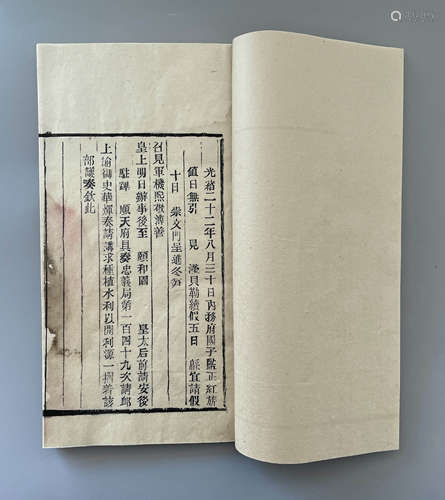 光緒二十二年八月三十日內務府國子監正紅旗
值日無引 見 濂貝勒續假五日 縣宜請假
十日 崇文門呈進冬笋
召見軍機熙敬溥善
皇上明日辦事後至 頤和園 皇太后前請安後
駐蹕 順天府具奏忠義局第一百四十九次請卹
上諭御史華煇奏請講求種植水利以開利源一摺著該
部議奏欽此